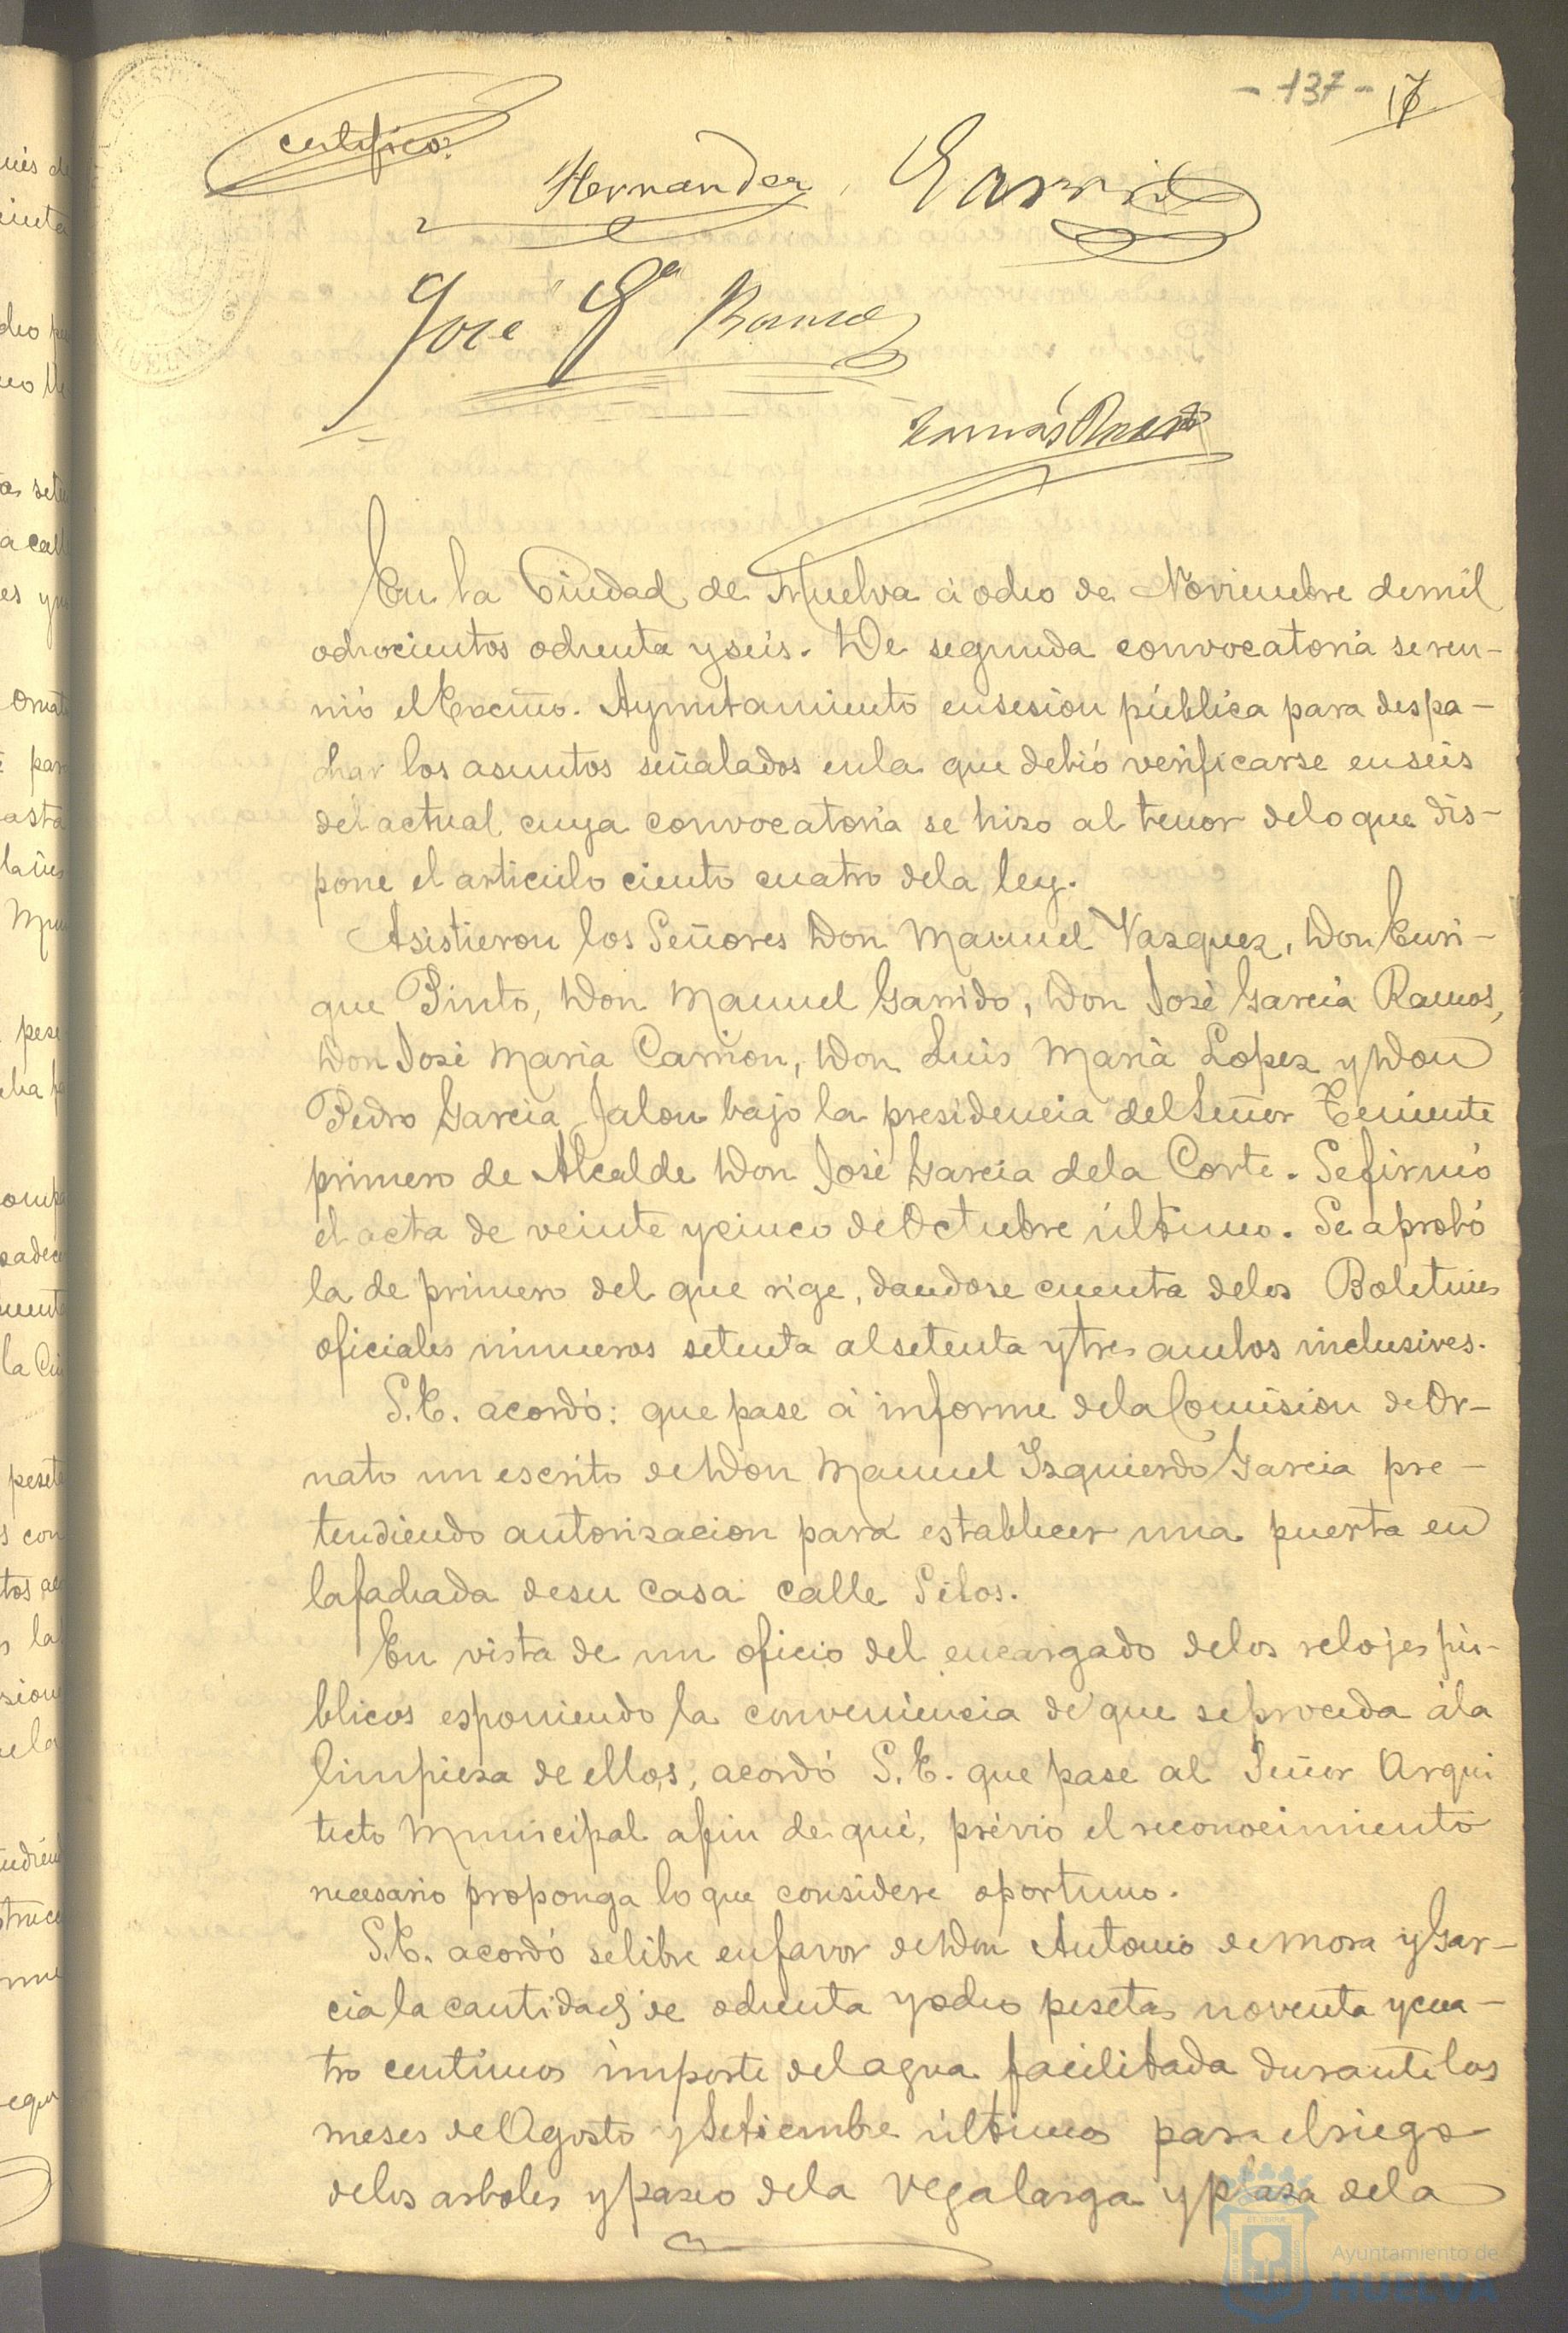 - 137 - 17
certifico:
Hernandez, Garrido
José Gª Ramos
Tomás
En la Ciudad de Huelva á ocho de Noviembre de mil
ochocientos ochenta y seis. De segunda convocatoria se reu-
nió el Excmo. Ayuntamiento en sesion pública para despa-
char los asuntos señalados en la que debió verificarse en seis
del actual cuya convocatoria se hizo al tenor de lo que dis-
pone el articulo ciento cuatro de la ley.
Asistieron los Señores Don Manuel Vazquez, Don Enri-
que Pinto, Don Manuel Garrido, Don José Garcia Ramos,
Don José Maria Carrion, Don Luis Maria Lopez y Don
Pedro Garcia Jalon bajo la presidencia del Señor Teniente
primero de Alcalde Don José Garcia de la Corte. Se firmó
el acta de veinte y cinco de Octubre último. Se aprobó
la de primero del que rige, dandose cuenta de los Boletines
oficiales números setenta al setenta y tres ambos inclusives.
S.E. acordó: que pase á informe de la Comision de Or-
nato un escrito de Don Manuel Izquierdo Garcia pre-
tendiendo autorizacion para establecer una puerta en
la fachada de su casa calle Silos.
En vista de un oficio del encargado de los relojes pú-
blicos esponiendo la conveniencia de que se proceda á la
limpieza de ellos, acordó S.E. que pase al Señor Arqui
tecto Municipal afin de qué, prévio el reconocimiento
necesario proponga lo que considere oportuno.
S.E. acordó se libre en favor de Don Antonio de Mora y Gar-
cia la cantidad de ochenta y ocho pesetas noventa y cua-
tro centimos importe del agua facilitada durante los
meses de Agosto y Setiembre últimos para el riego
de los arboles y paseo de la Vega larga y plaza de la
Ayuntamiento de
HUELVA